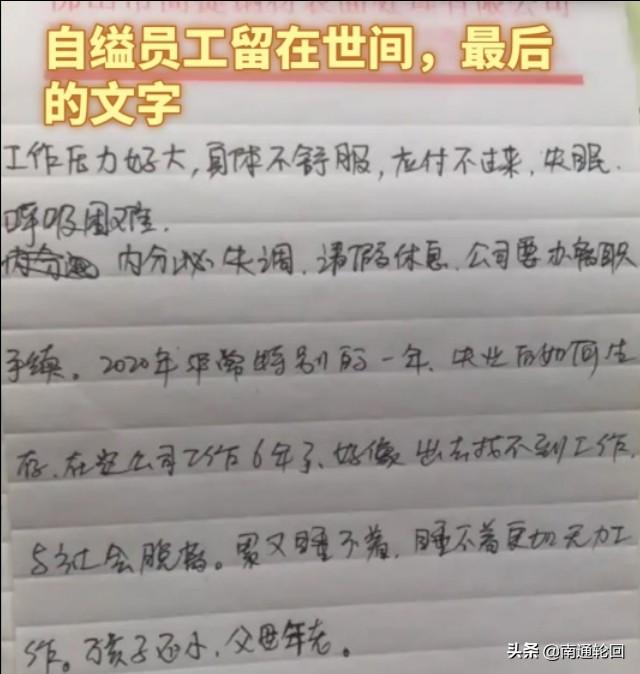 自缢员工留在世间，最后
的文字
工作压力好大，身体不舒服，应付不过来，失眠.
呼吸困难.
内分泌失调，请假休息，公司要办离职
手续。2020年非常特别的一年、失业后如何生
存、在定公司工作6年了、好像出去找不到工作，
与社会脱轨。累又睡不着，睡不着更加无力工
作。孩子还小，父母年老。
头条 @南通轮回